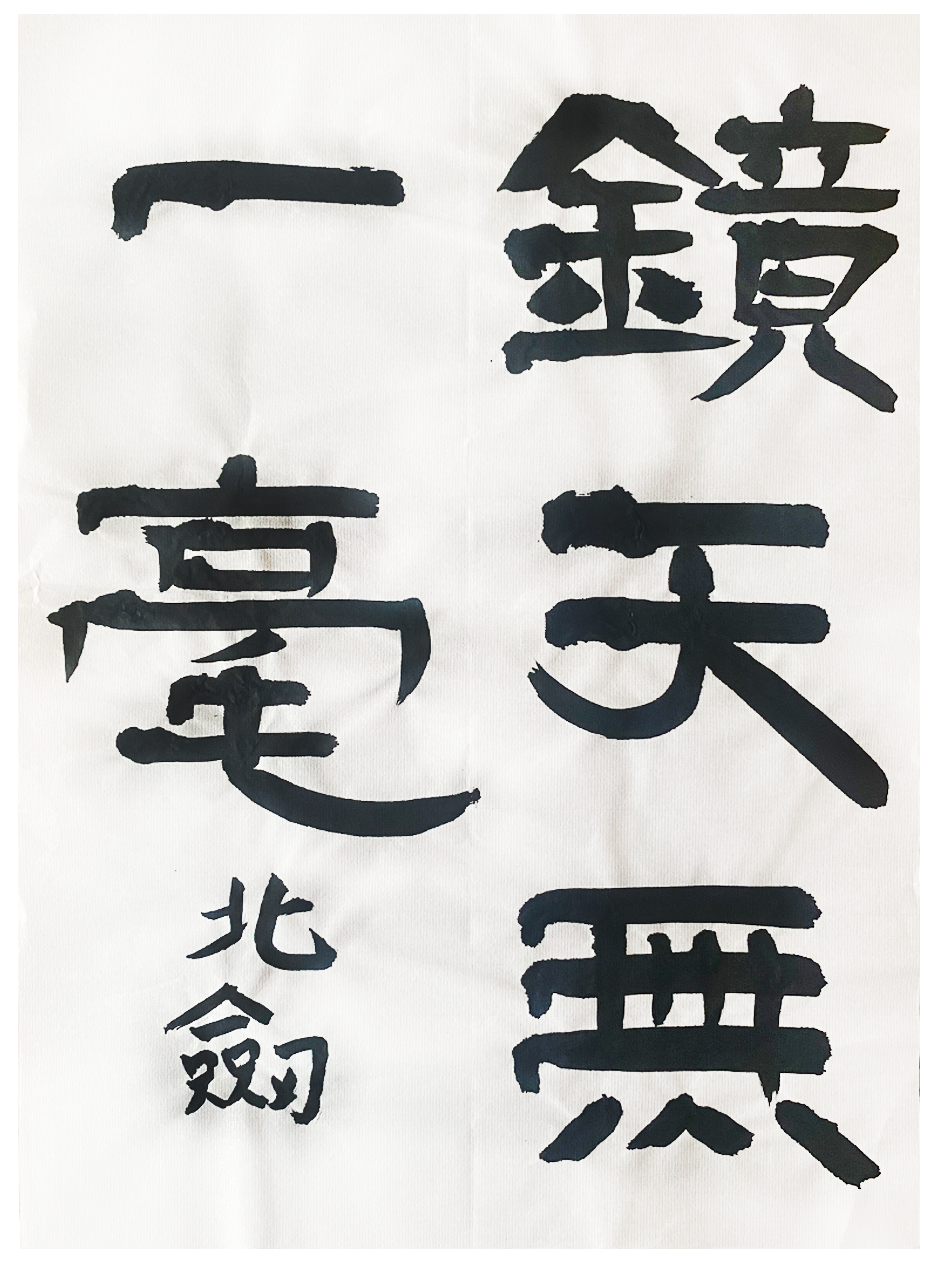 鏡天無
一毫
北劔